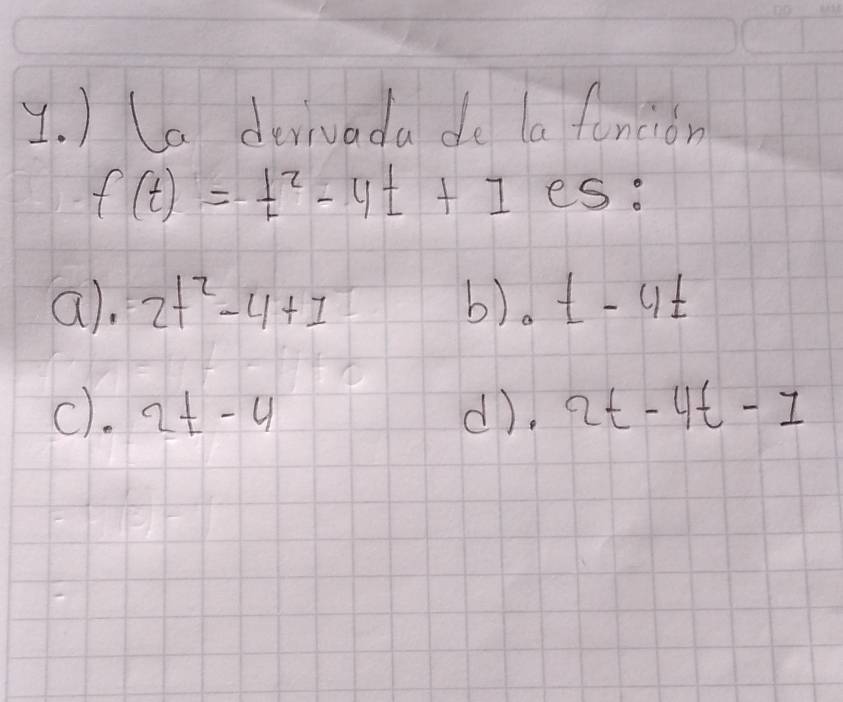 1.) La derivada de la función
f(t) = t² - 4t + 1 es:
a). 2t² - 4 + 1 b). t - 4t
c). 2t - 4 d). 2t - 4t - 1